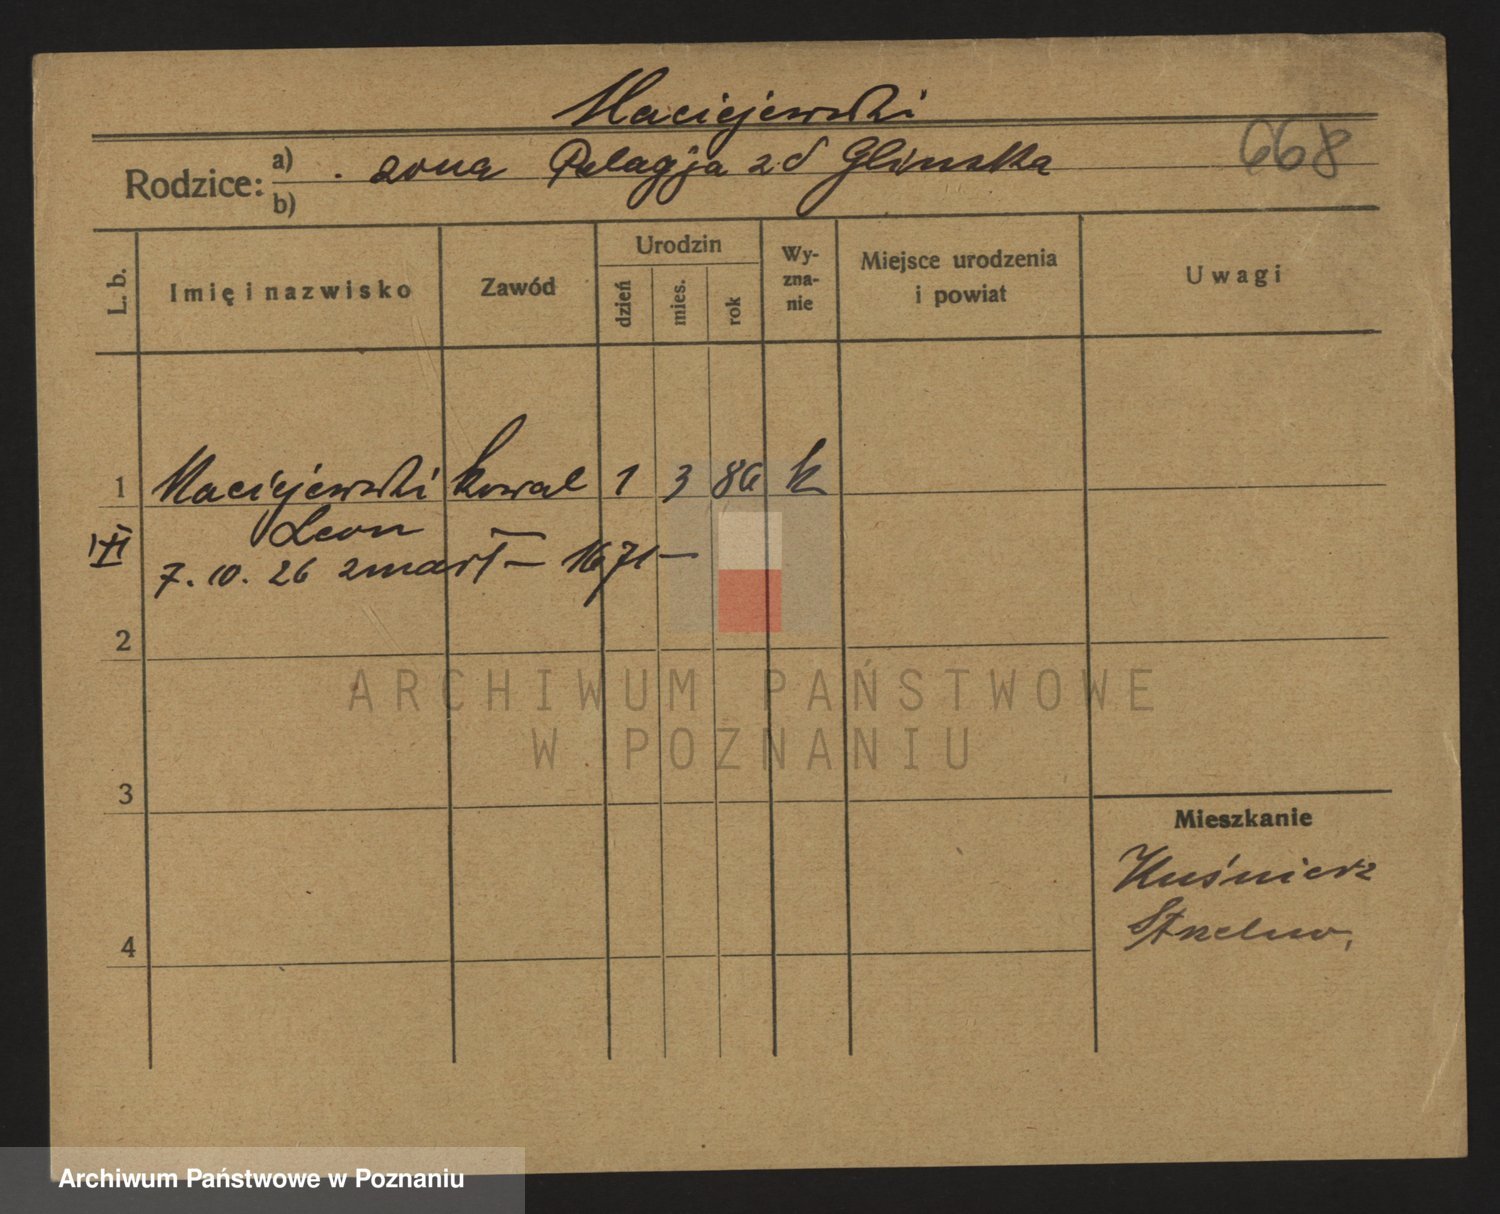 Maciejewski
Rodzice: a) . żona Pelagja zd Glinska 668
b)
L. b.
Imię i nazwisko
Zawód
Urodzin
dzień
mies.
rok
Wy-
zna-
nie
Miejsce urodzenia
i powiat
Uwagi
1 Maciejewski kowal 1 3 86 k
Leon
7. 10. 26 zmarł — 1671 —
2
3
4
Mieszkanie
Kuśnierz
Strzelno,
ARCHIWUM PAŃSTWOWE
W POZNANIU
Archiwum Państwowe w Poznaniu